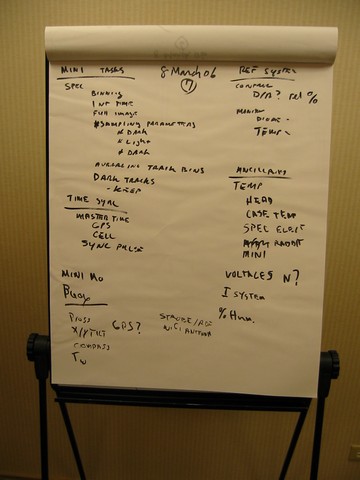 8 March 06
7
MINI TASKS
SPEC
BINNING
INT TIME
FULL IMAGE
# SAMPLING PARAMETERS
# DARK
# LIGHT
# DARK
AVERAGING TRACK BINS
DARK TRACKS
- KEEP
TIME SYNC
MASTER TIME
GPS
CELL
SYNC PULSE
MINI MO
BUOY
PRESS
X/Y TILT GPS?
COMPASS
TW
REF SYSTEM
CONTROL
D/A? rel %
MONITOR
DIODE -
TEMP -
ANCILLARY
TEMP
HEAD
CASE TEMP
SPEC ELECT
MINI
VOLTAGES N?
I SYSTEM
% Hum.